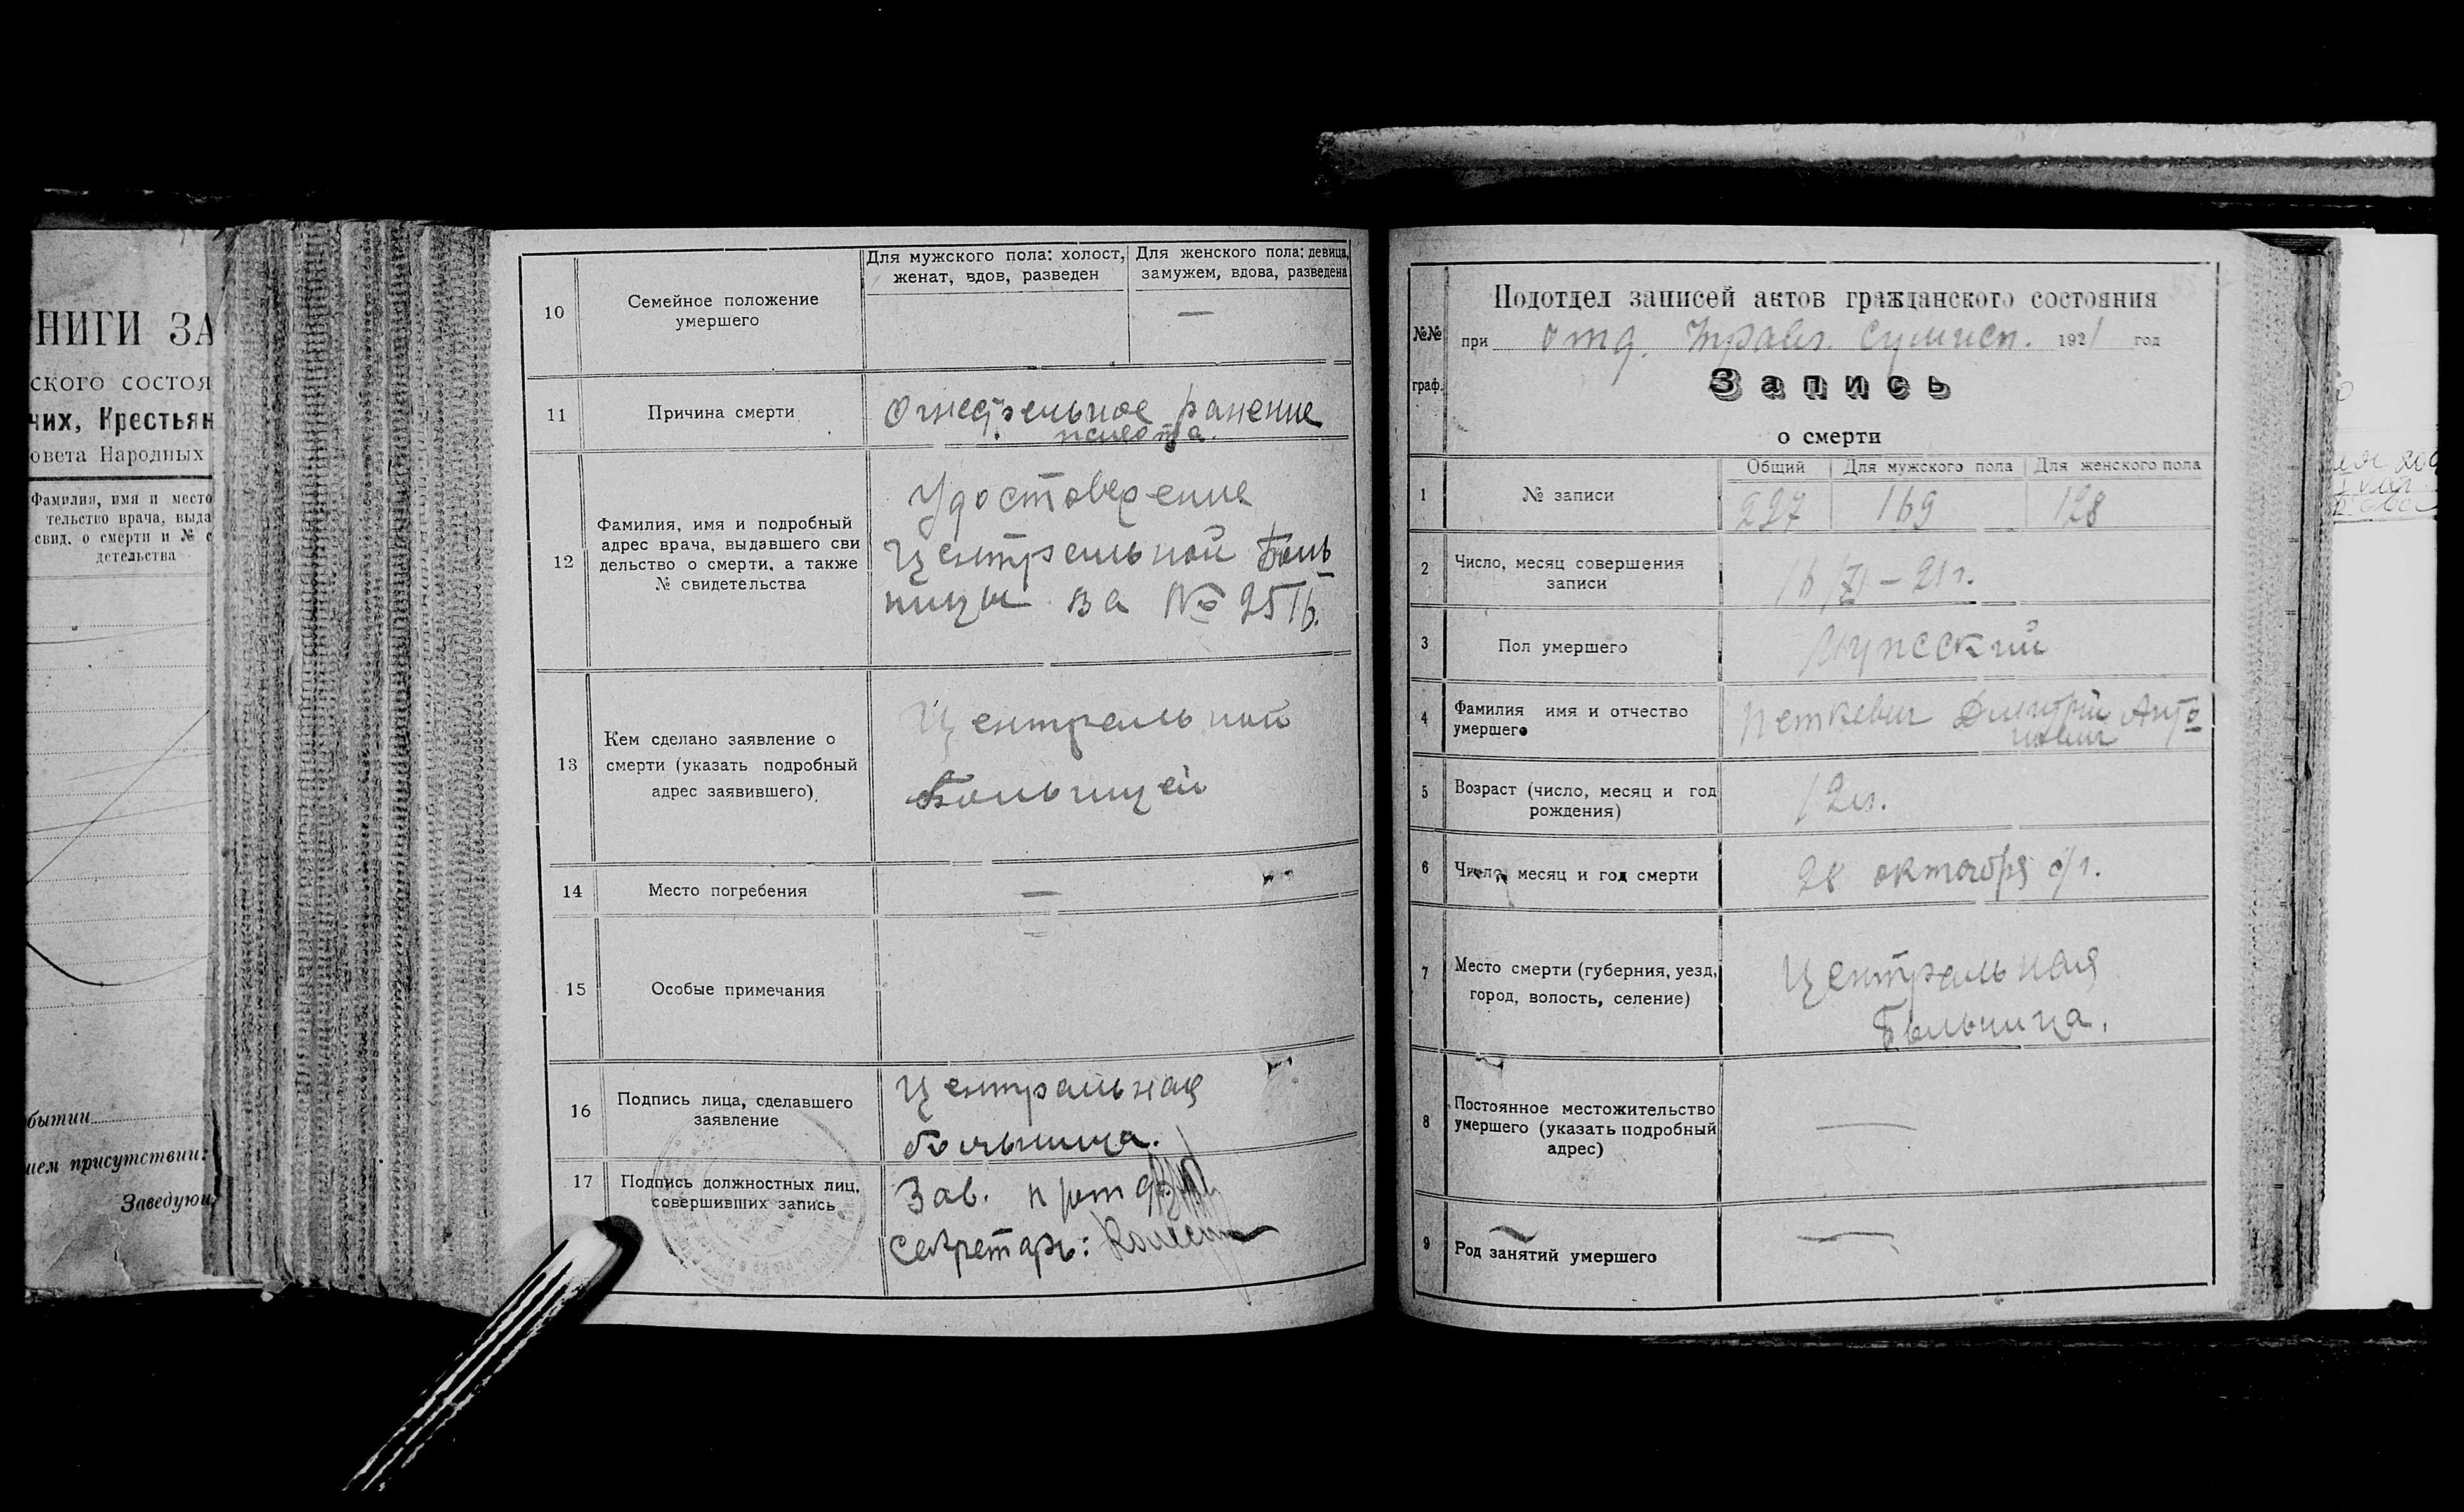 НИГИ ЗА
ского состоя
чих, Крестьян
овета Народных
Фамилия, имя и место
тельство врача, выда
свид. о смерти и № с
детельства
бытии
ием присутствии:
Заведую
10
Семейное положение
умершего
Для мужского пола: холост,
женат, вдов, разведен
Для женского пола: девица,
замужем, вдова, разведена
—
11
Причина смерти
Огнестрельное ранение
живота.
12
Фамилия, имя и подробный
адрес врача, выдавшего сви
дельство о смерти, а также
№ свидетельства
Удостоверение
Центральной Боль
ницы за № 2516.
13
Кем сделано заявление о
смерти (указать подробный
адрес заявившего)
Центральной
Больницей
14
Место погребения
—
15
Особые примечания
16
Подпись лица, сделавшего
заявление
Центральная
больница.
17
Подпись должностных лиц,
совершивших запись
Зав.
Секретарь:
№№
граф.
Подотдел записей актов гражданского состояния
при отд. Управл. Сумисп. 1921 год
Запись
о смерти
1
№ записи
Общий
Для мужского пола
Для женского пола
297
169
128
2
Число, месяц совершения
записи
16/XI – 21 г.
3
Пол умершего
Мужский
4
Фамилия имя и отчество
умершего
Петкевич Дмитрий Анто
нович
5
Возраст (число, месяц и год
рождения)
12 л.
6
Число, месяц и год смерти
28 октября с/г.
7
Место смерти (губерния, уезд,
город, волость, селение)
Центральная
Больница.
8
Постоянное местожительство
умершего (указать подробный
адрес)
—
9
Род занятий умершего
—